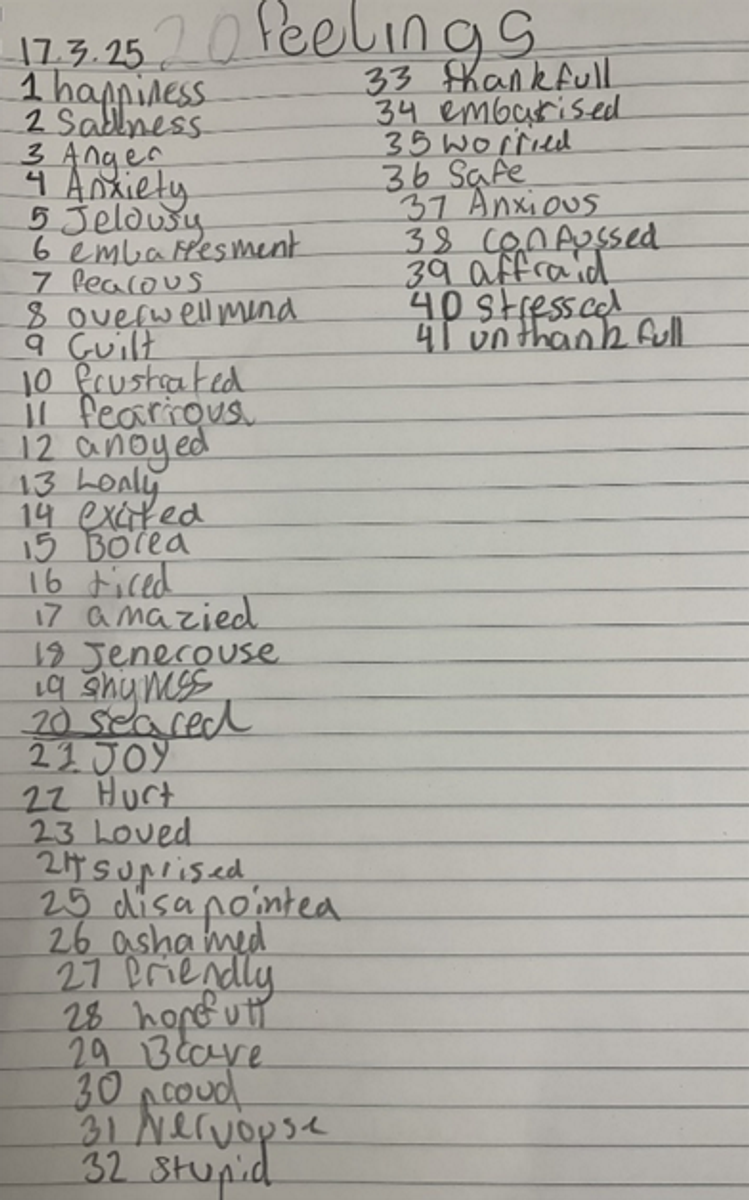 17.3.25 20 feelings
1 happiness
2 Sadness
3 Anger
4 Anxiety
5 Jelousy
6 embarresment
7 fearous
8 overwellmend
9 Guilt
10 frustrated
11 fearious
12 anoyed
13 Lonly
14 exited
15 Bored
16 tired
17 amazied
18 Jenerouse
19 shyness
20 scared
21 JOY
22 Hurt
23 Loved
24 suprised
25 disapointed
26 ashamed
27 friendly
28 hopefull
29 Brave
30 proud
31 Nervouse
32 stupid
33 thankfull
34 embarised
35 worried
36 Safe
37 Anxious
38 confussed
39 affraid
40 stressed
41 unthankfull